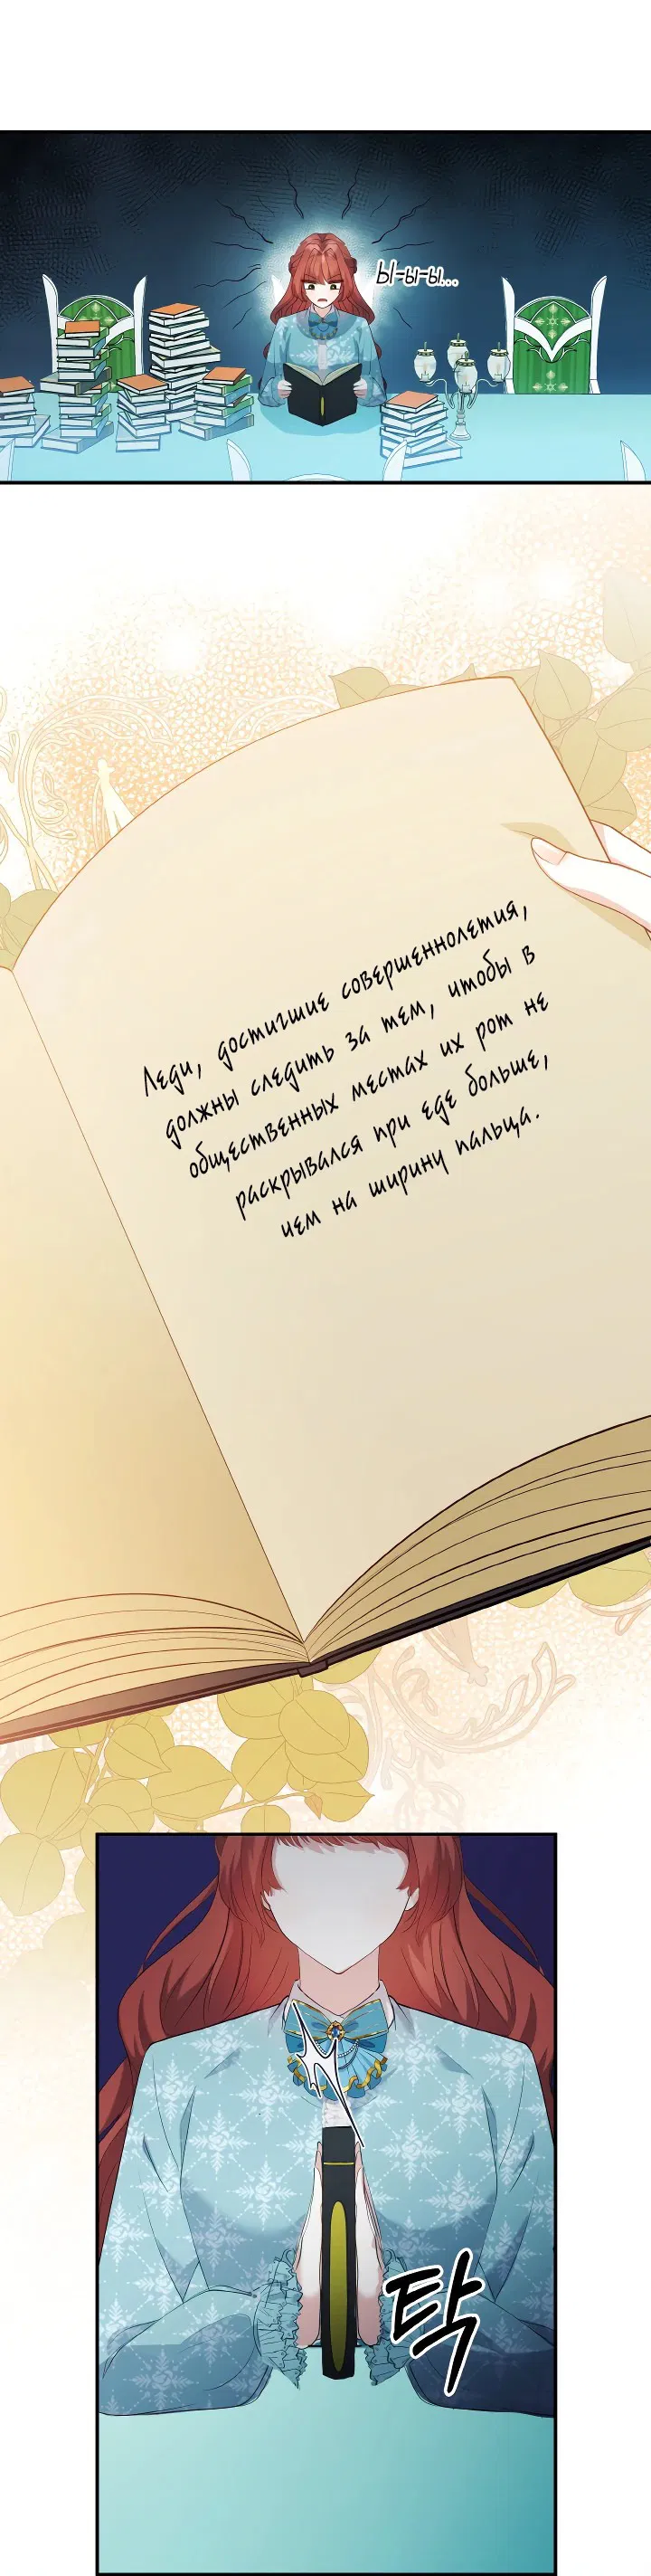 Ы-ы-ы...
Леди, достигшие совершеннолетия,
должны следить за тем, чтобы в
общественных местах их рот не
раскрывался при еде больше,
чем на ширину пальца.
탁